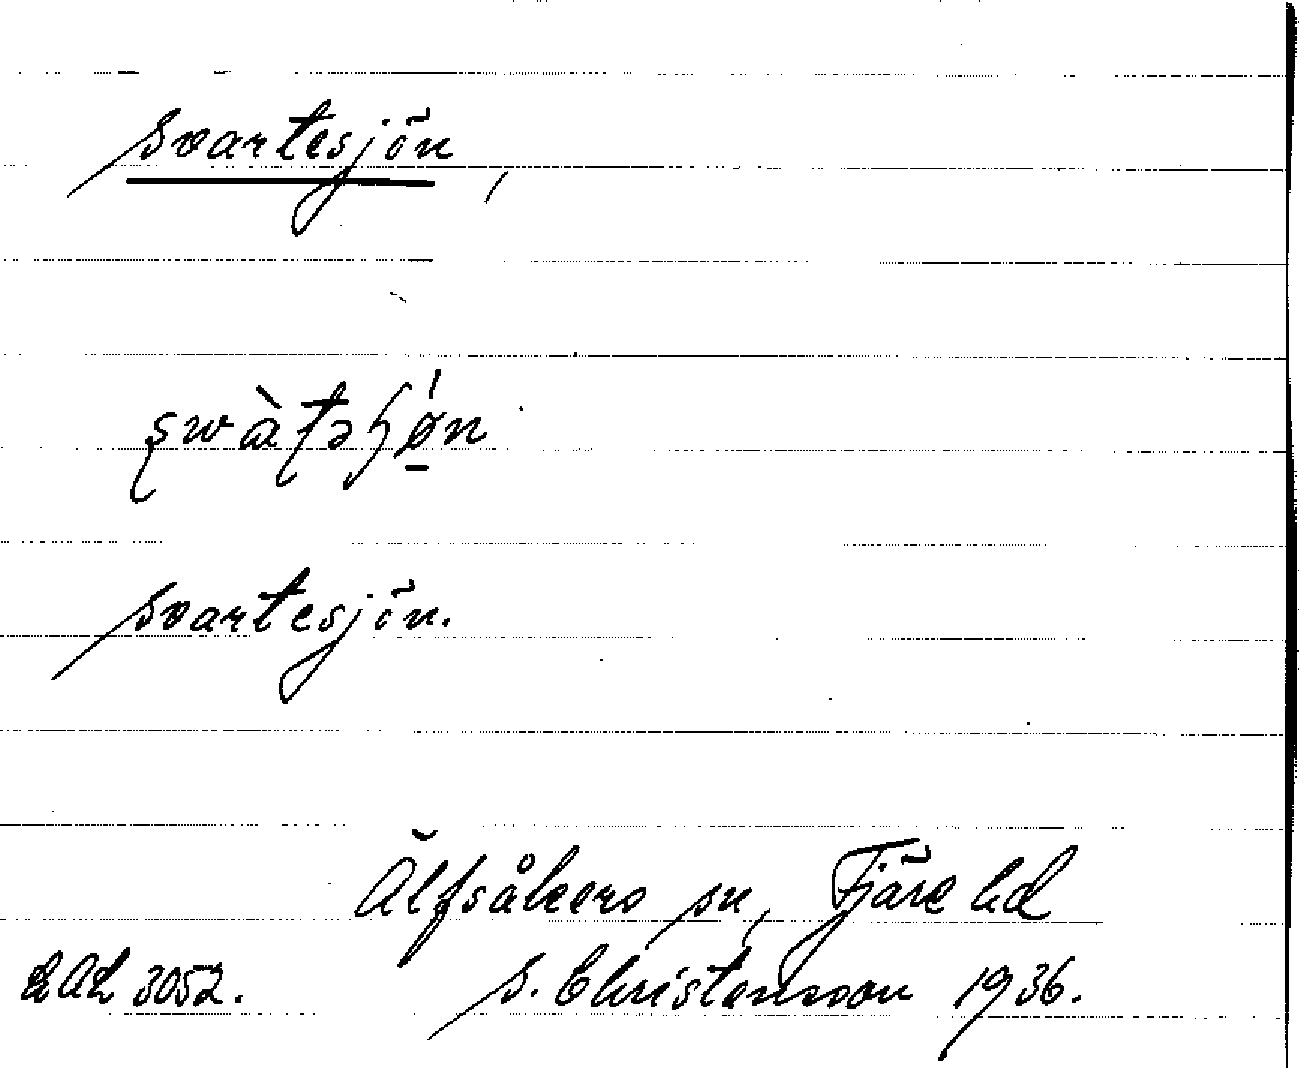 svartesjön,
swàtəɧǿn
svartesjön.
Älfsåkers sn, Fjäre hd
LAL 3052. S. Christensson 1936.